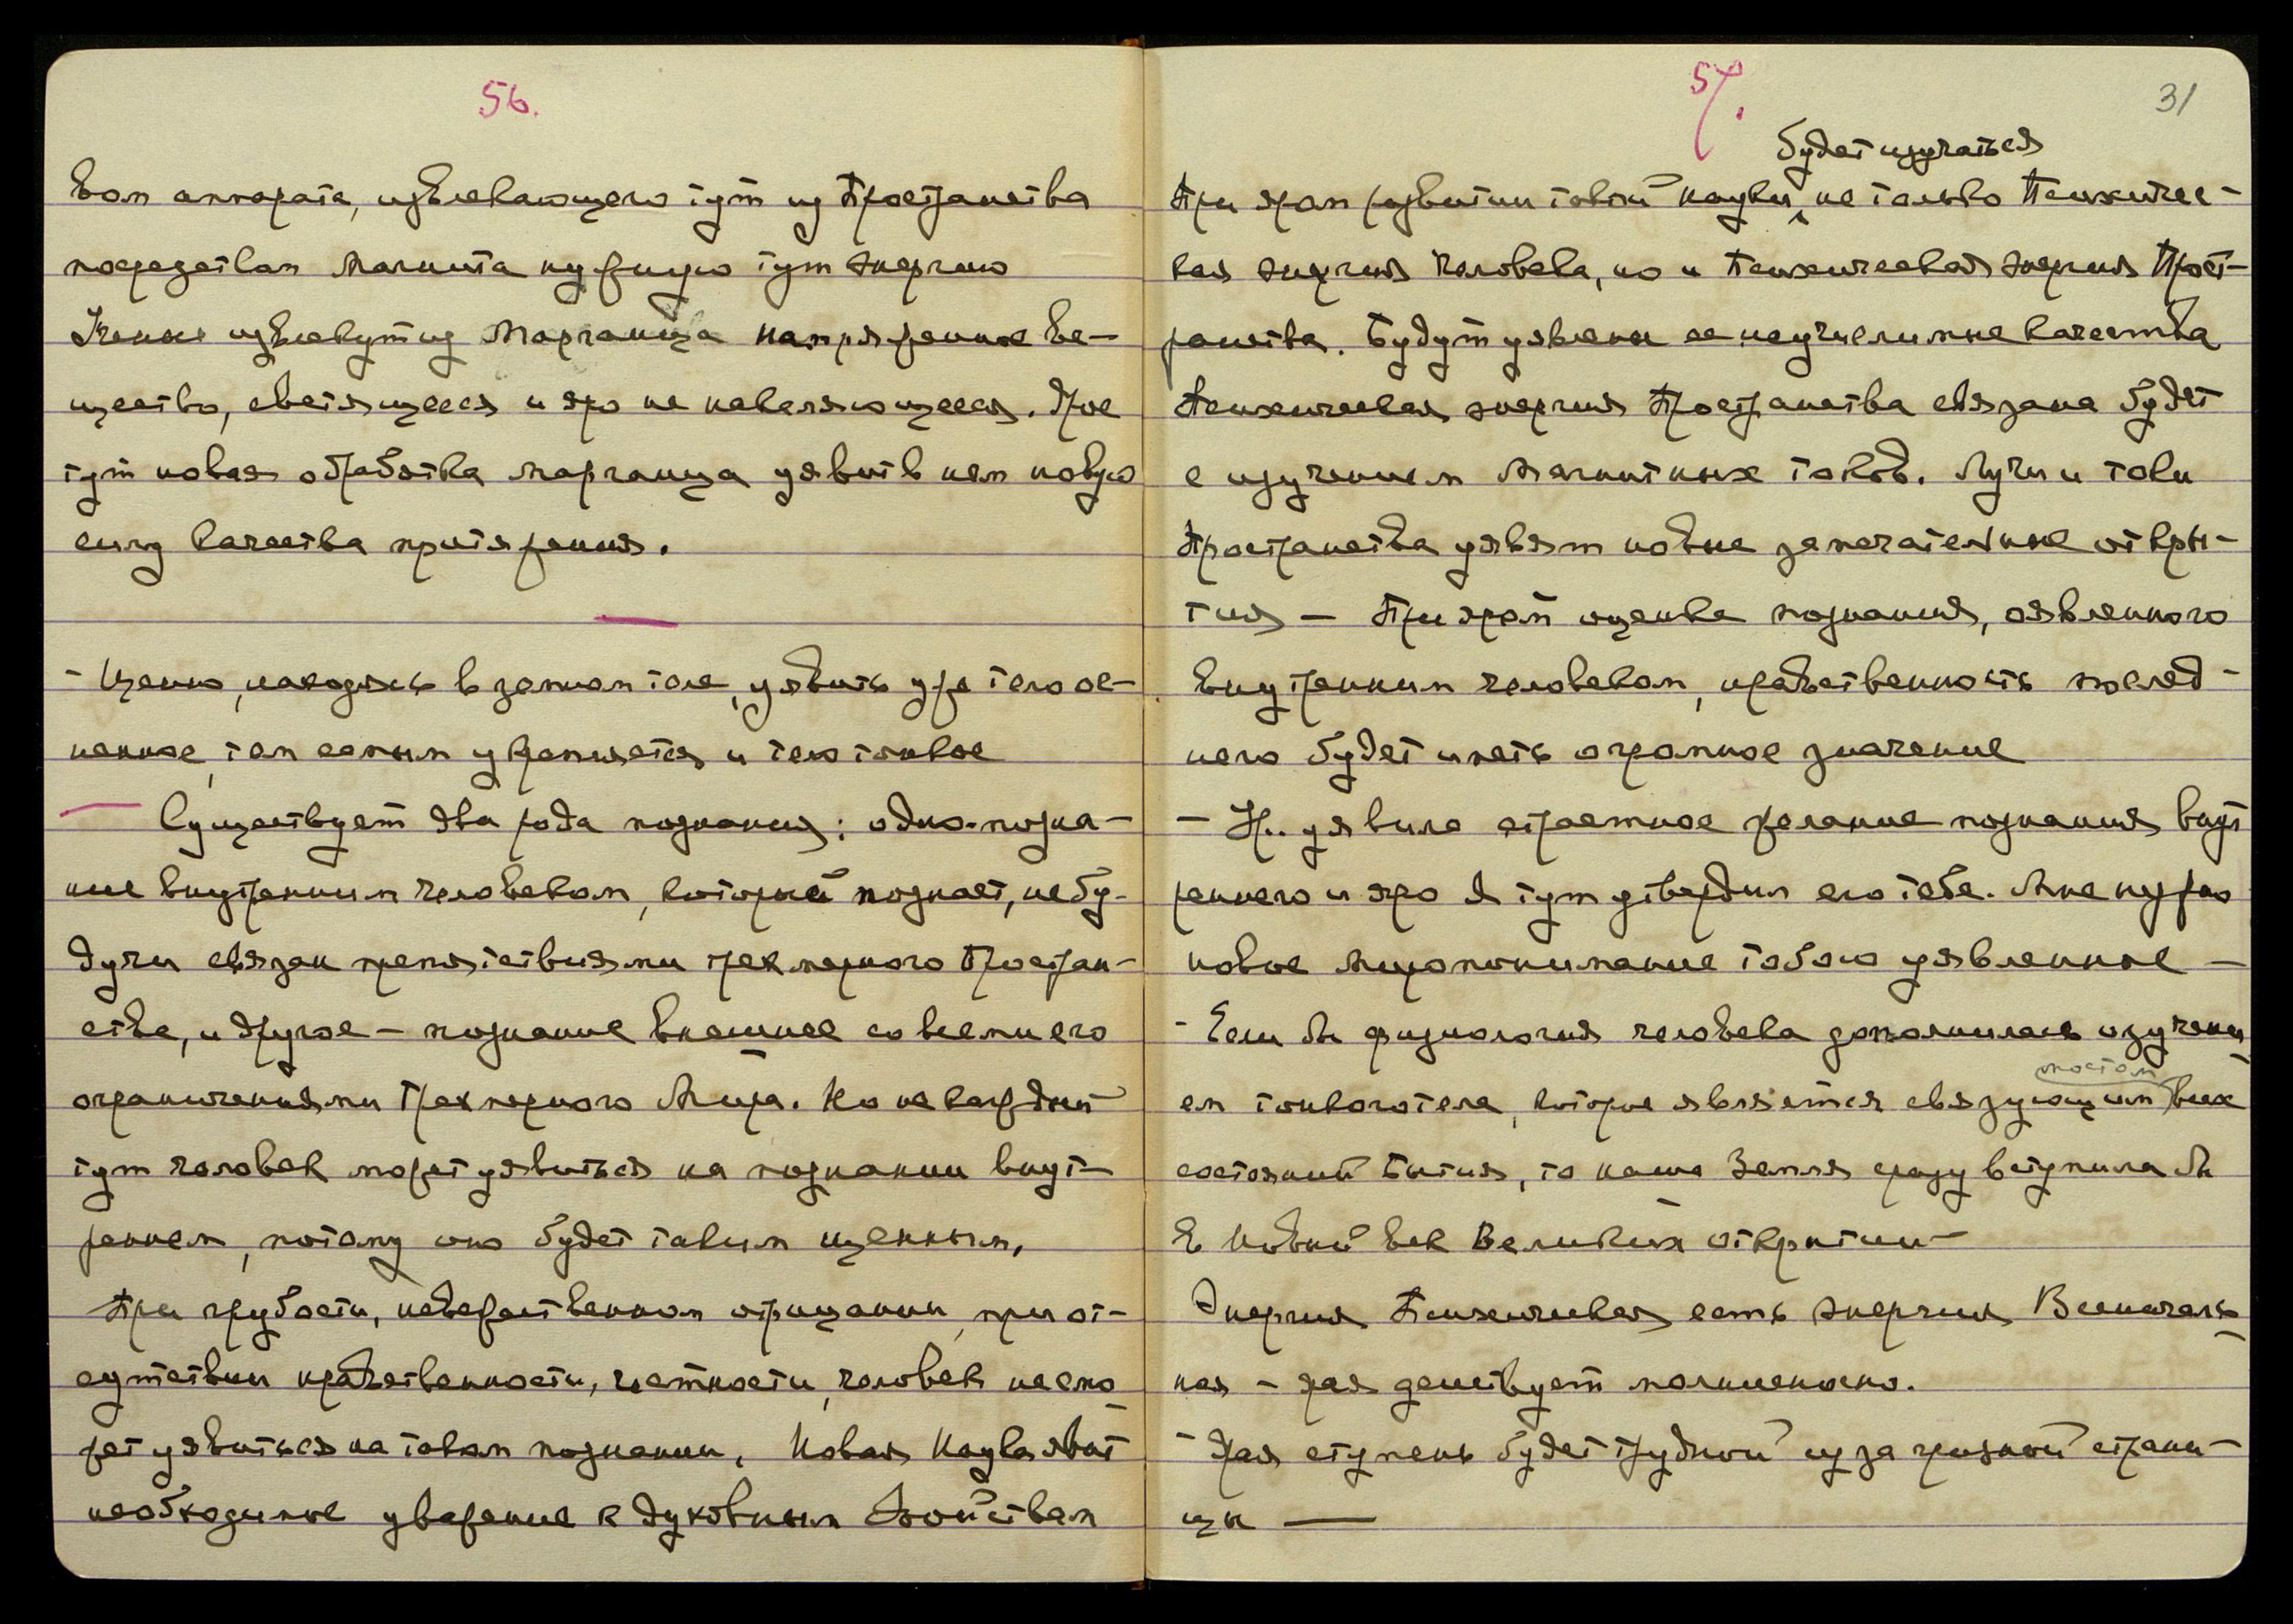 56.
вом аппарата, извлекающего тут из Пространства
посредством Магнита нужную тут энергию
Ученые извлекут из Марганца напряженное ве-
щество, светящееся и яро не накаляющееся. Ярое
тут новая обработка марганца уявит в нем новую
силу качества притяжения.
- Ценно, находясь в земном теле, уявить уже тело ог-
ненное, тем самым укрепляется и тело тонкое
Существует два рода познания: одно - позна-
ние внутренним человеком, который познает, не бу-
дучи связан препятствиями трехмерного Простран-
ства, и другое - познание внешнее со всеми его
ограничениями трехмерного Мира. Но не каждый
тут человек может уявиться на познании внут-
реннем, потому оно будет таким ценным,
При грубости, невежественном отрицании, при от-
сутствии нравственности, честности, человек не смо
жет уявиться на таком познании. Новая Наука явит
необходимое уважение к духовным свойствам
57.
31
будет изучаться
При яром развитии такой науки не только Психичес-
кая энергия человека, но и Психическая энергия Прост-
ранства. Будут уявлены ее неисчислимые качества
Психическая энергия Пространства связана будет
с изучением Магнитных токов. Лучи и токи
Пространства уявят новые замечательные откры-
тия — При ярой оценке познания, оявленного
внутренним человеком, нравственность послед-
него будет иметь огромное значение
- Ур. уявила страстное желание познания внут
реннего и яро Я тут утвердил его тебе. Мне нужно
новое миропонимание тобою уявленное —
- Если бы физиология человека дополнилась изучени
мостом
ем тонкого тела, которое является связующим всех
состояний Бытия, то наша Земля сразу вступила бы
в Новый век Великих открытий -
Энергия Психическая есть энергия Всеначаль
ная - ярая действует молниеносно.
- Ярая ступень будет трудной из за грязной страни-
цы —